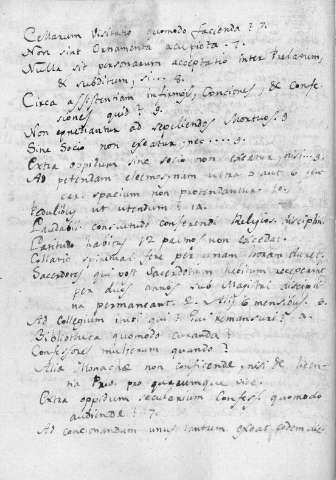 Cellarum Visitatio quomodo facienda? 7.
Non sint Ornamenta acupicta. 7.
Nulla sit personarum acceptatio inter Prelatum,
& subditum, si... 8.
Circa assistentiam infirmos, Conciones, & Confes-
siones quid? 9.
Non egrediantur ad sepeliendos Mortuos 9
Sine Socio non exeatur, nec.... 9.
Extra oppidum sine socio non exeatur, nisi.. 9.
Ad petendam eleemosinam ultra 5 aut 6
spacium non protendantur. 10.
Pedulibus ut utendum? 12.
Laudabis consuetudo conferendi Religios. discipli.
Latitudo habitus 12 palmos non excedat.
Collatio spiritual fere per unam horam duret.
Sacerdotes qui post Sacerdotium habitum receperunt
per duos annos sub Magistri discipli-
na permaneant. & Alii 6 mensibus. 6.
Ad Collegium inituri qui & ubi remansuri? 2.
Bibliotheca quomodo curanda?
Confessores mulierum quando?
Alia Monachae non conficiende, nisi de licen-
tia Pro. pro quacumque vice.
Extra oppidum secularium Confess. quomodo
audiende? 7.
Ad concionandum unus tantum exeat eodem die